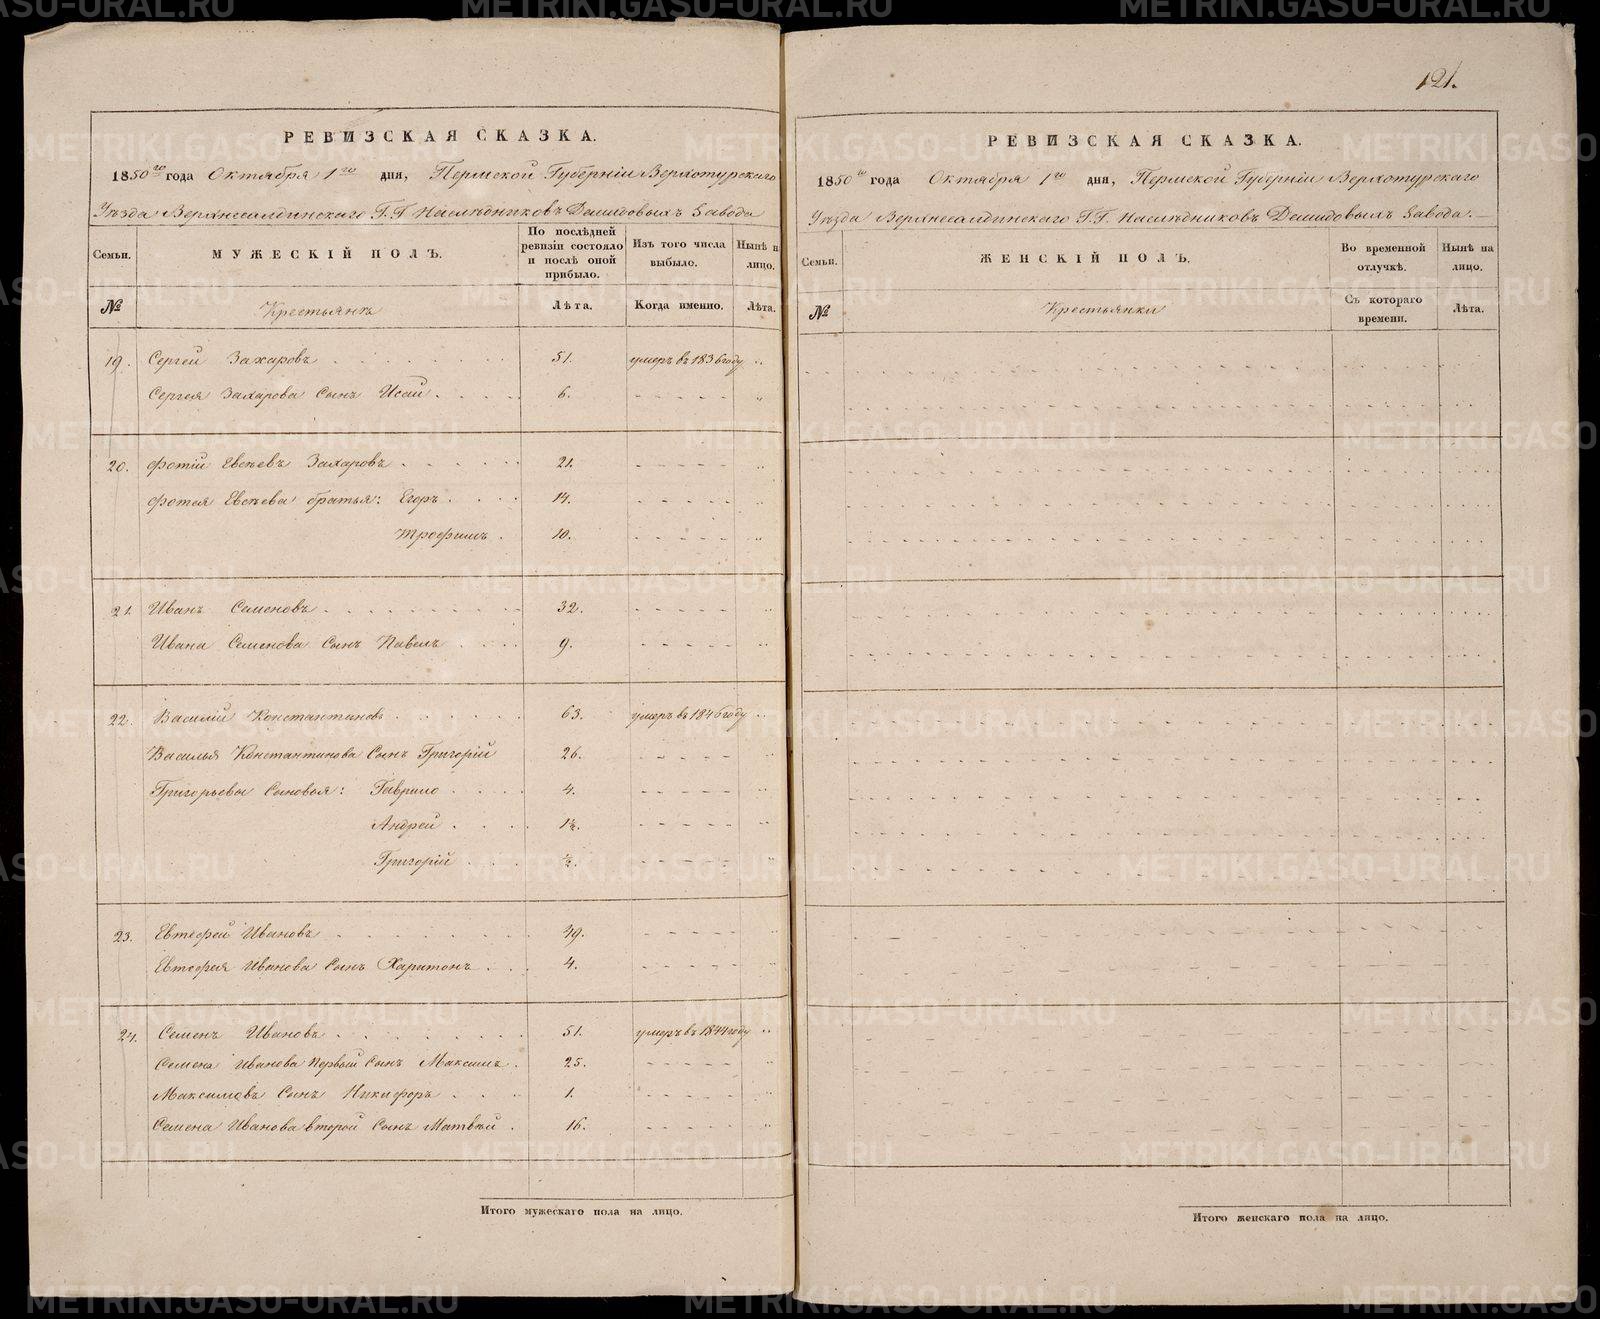 121.
РЕВИЗСКАЯ СКАЗКА.
1850го года Октября 1го дня, Пермской Губерніи Верхотурскаго
Уѣзда Верхнесалдинскаго Г.Г. Наслѣдниковъ Демидовыхъ Завода
Семьи. МУЖЕСКІЙ ПОЛЪ. По послѣдней ревизіи состояло и послѣ оной прибыло. Изъ того числа выбыло. Нынѣ на лицо.
№ Крестьянъ Лѣта. Когда именно. Лѣта.
19. Сергей Захаровъ 51. умеръ въ 1836 году
Сергея Захарова Сынъ Исай 6.
20. Фотій Евсѣевъ Захаровъ 21.
Фотея Евсѣева братья: Егоръ 14.
Трофимъ 10.
21. Иванъ Семеновъ 32.
Ивана Семенова Сынъ Павелъ 9.
22. Василій Константиновъ 63. умеръ въ 1846 году
Василья Константинова Сынъ Григорій 26.
Григорьевы Сыновья: Гаврило 4.
Андрей 1½.
Григорій ½.
23. Евтефей Ивановъ 49.
Евтефея Иванова Сынъ Харитонъ 4.
24. Семенъ Ивановъ 51. умеръ въ 1844 году
Семена Иванова первый Сынъ Максимъ 25.
Максимовъ Сынъ Никифоръ 1.
Семена Иванова второй Сынъ Матвѣй 16.
Итого мужескаго пола на лицо.
РЕВИЗСКАЯ СКАЗКА.
1850го года Октября 1го дня, Пермской Губерніи Верхотурскаго
Уѣзда Верхнесалдинскаго Г.Г. Наслѣдниковъ Демидовыхъ Завода.
Семьи. ЖЕНСКІЙ ПОЛЪ. Во временной отлучкѣ. Нынѣ на лицо.
№ Крестьянки Съ котораго времени. Лѣта.
Итого женскаго пола на лицо.
METRIKI.GASO-URAL.RU